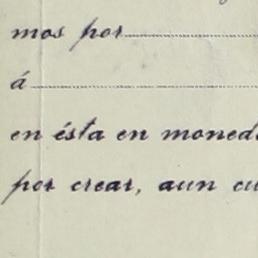 mos por
á
en ésta en moned
por crear, aun cu